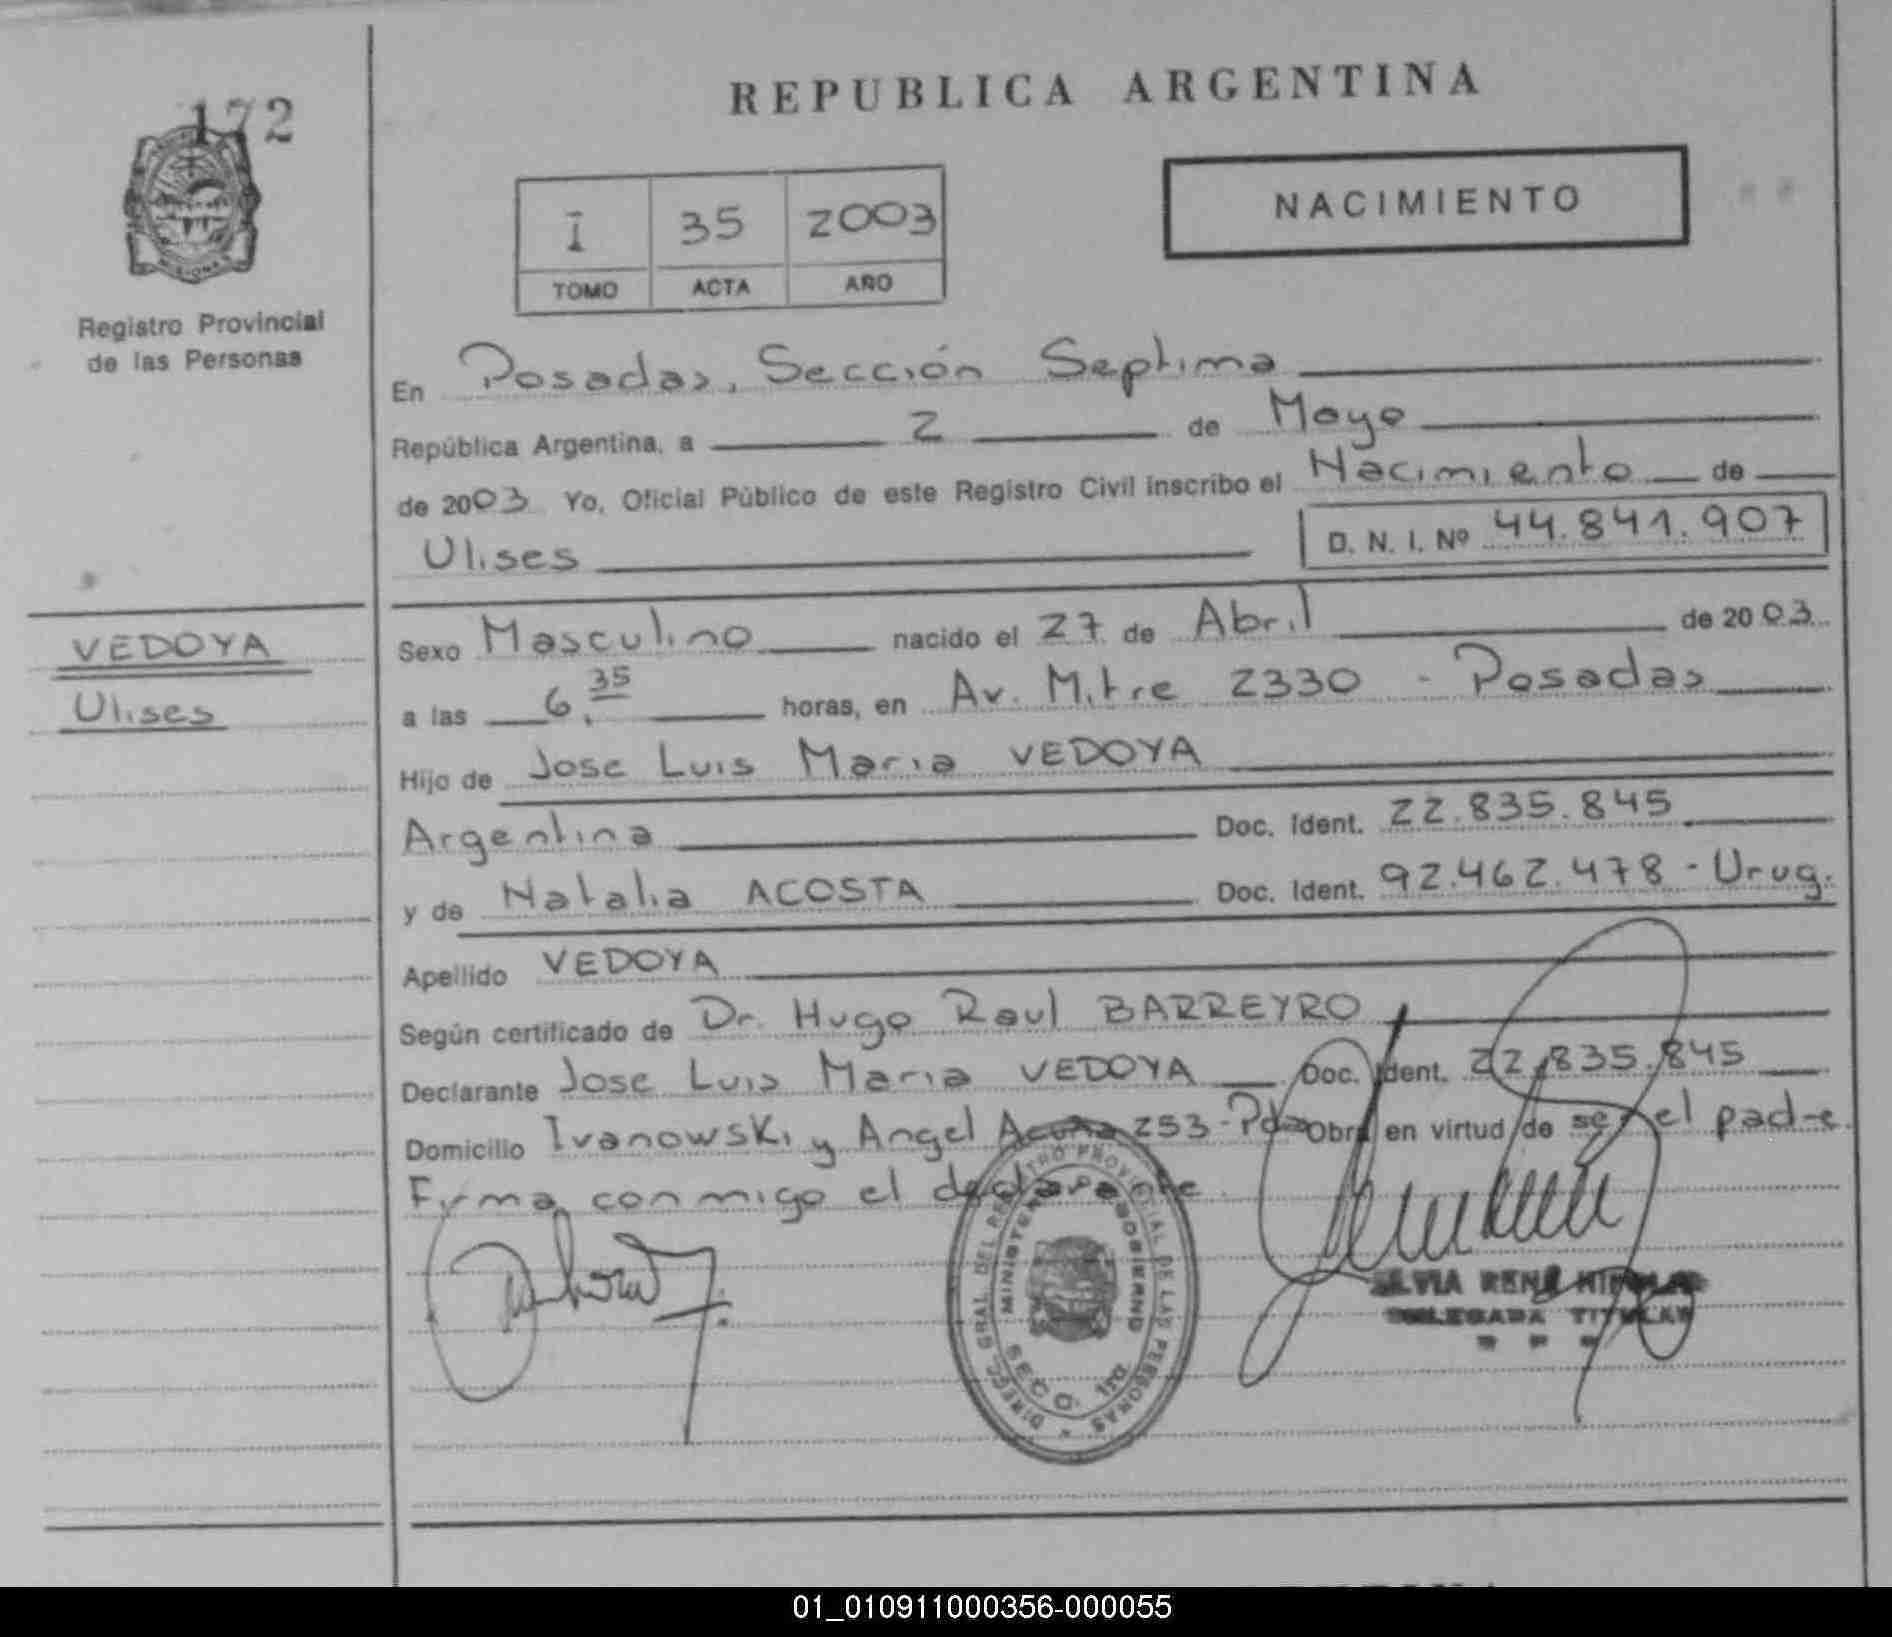 172
MISIONES
Registro Provincial
de las Personas
REPUBLICA ARGENTINA
I 35 2003
TOMO ACTA AÑO
NACIMIENTO
En Posadas, Sección Septima
República Argentina, a 2 de Mayo
de 2003 Yo, Oficial Público de este Registro Civil inscribo el Nacimiento de
Ulises D. N. I. Nº 44.841.907
VEDOYA
Ulises
Sexo Masculino nacido el 27 de Abril de 2003
a las 6,35 horas, en Av. Mitre 2330 - Posadas
Hijo de Jose Luis Maria VEDOYA
Argentina Doc. Ident. 22.835.845
y de Natalia ACOSTA Doc. Ident. 92.462.478 - Urug.
Apellido VEDOYA
Según certificado de Dr. Hugo Raul BARREYRO
Declarante Jose Luis Maria VEDOYA Doc. Ident. 22.835.845
Domicilio Ivanowski y Angel Acuña 253 - Pdas Obra en virtud de ser el padre
Firma conmigo el declarante
DIRECC. GRAL. DEL REGISTRO PROVINCIAL DE LAS PERSONAS
MINISTERIO DE GOBIERNO
SECC.
SILVIA RENÉ
DELEGADA TITULAR
01_010911000356-000055